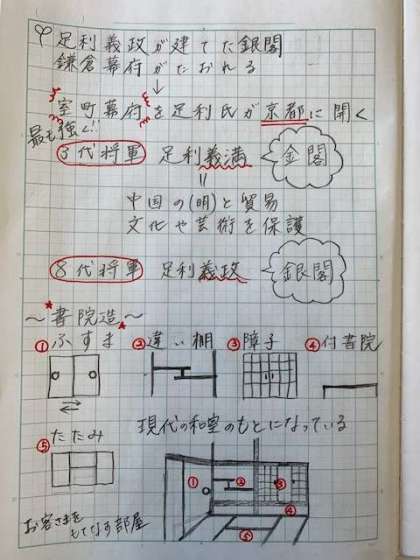 足利義政が建てた銀閣
鎌倉幕府がたおれる
↓
室町幕府を足利氏が京都に開く
最も強ぐ
3代将軍 足利義満 金閣
中国の(明)と貿易
文化や芸術を保護
8代将軍 足利義政 銀閣
～書院造～
①ふすま ②違い棚 ③障子 ④付書院
⑤たたみ
現代の和室のもとになっている
① ② ③ ④ ⑤
お客さまをもてなす部屋